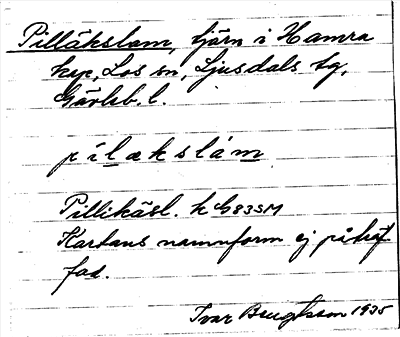 Pilläkslam, tjärn i Hamra
kap, Los sn, Ljusdals tg,
Gävleb. l.
pilakslám
Pillikäsl. k G83SM
Kartans namnform ej påträf-
fad.
Ivar Bengtsson 1935